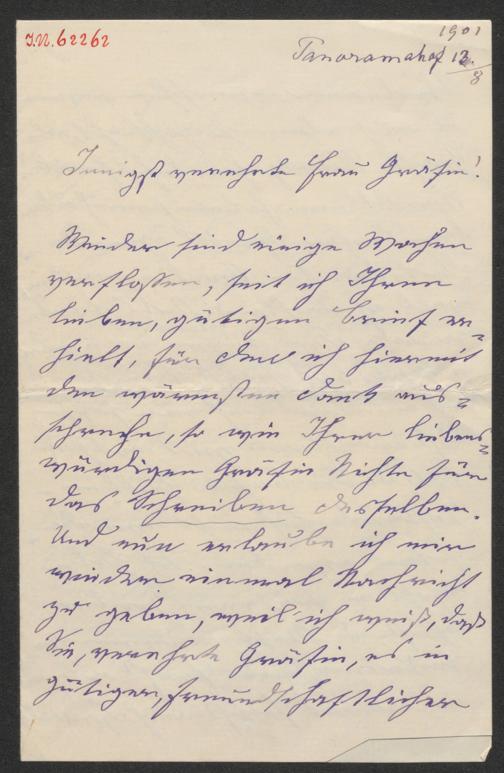 J.N. 62262
1901
Panoramahof 13/8
Innigst verehrte Frau Gräfin!
Wieder sind einige Wochen
verflossen, seit ich Ihren
lieben, gütigen Brief er-
hielt, für den ich hiermit
den wärmsten Dank aus-
spreche, so wie Ihrer liebens-
würdigen Gräfin Nichte für
das Schreiben desselben.
Und nun erlaube ich mir
wieder einmal Nachricht
zu geben, weil ich weiß, daß
Sie, verehrte Gräfin, es in
gütiger, freundschaftlicher